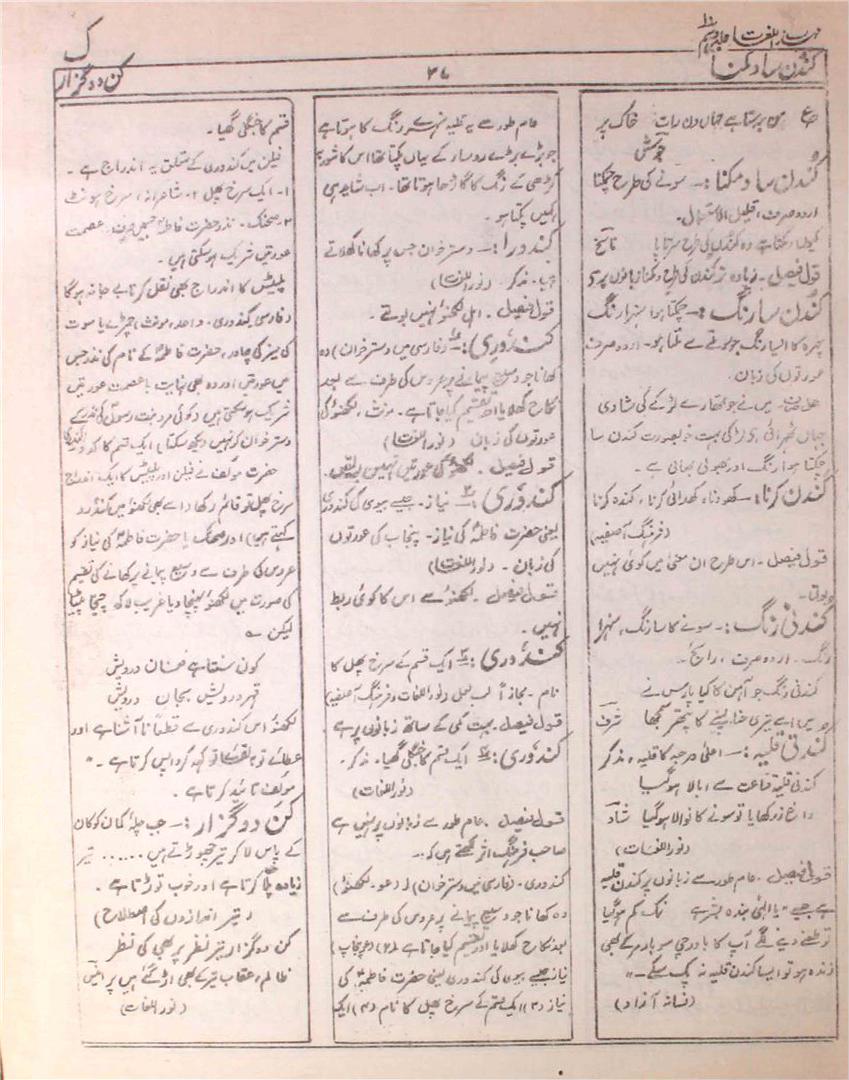 مہذب اللغات جلد دہم
ک
کندن سا دمکنا
۳۷
کن دو گزار
ع من برستا ہے جہاں دن رات خاک پر
جوش
کندن سا دمکنا :- سونے کی طرح چمکنا
اردو صرف، قلیل الاستعمال۔
دمکتا ہے وہ کندن کی طرح سرتاپا ناسخ
قول فیصل۔ زیادہ تر کندن کی طرح دمکنا زبانوں پر ہے
کندن سا رنگ :- چمکتا ہوا سنہرا رنگ
چہرہ کا ایسا رنگ جو سونے سے ملتا ہو۔ اردو صرف
عورتوں کی زبان۔
میں نے جو تمھارے لڑکے کی شادی
جہاں ٹھہرائی ہے لڑکی بہت خوبصورت کندن سا
چمکتا ہوا رنگ اور بھولی بھالی ہے۔
کندن کرنا :- کھودنا، کھدائی کرنا، کندہ کرنا
(فرہنگ آصفیہ)
قول فیصل۔ اس طرح ان معنی میں کوئی نہیں
بولتا۔
کندنی رنگ :- سونے کا سا رنگ، سنہرا
رنگ۔ اردو صرف، رائج۔
کندنی رنگ جو آہن کا کیا پارس نے
میں اسے تیری حنا پسنے کا پتھر سمجھا شرف
کندنی قلیہ :- اعلیٰ درجہ کا قلیہ، مذکر
کندنی قلیہ قناعت سے ابالا ہو گیا
داغ زر کھایا تو سونے کا نوالا ہو گیا شاد
(نور اللغات)
قول فیصل۔ عام طور سے زبانوں پر کندن قلیہ
ہے جیسے "یا الٰہی بندہ بشر ہے نمک کم ہو گیا
تو طعنے دینے لگے آپ کا باورچی سو بار مر کے بھی
زندہ ہو تو ایسا کندن قلیہ نہ پک سکے۔"
(فسانہ آزاد)
عام طور سے یہ قلیہ سنہرے رنگ کا ہوتا ہے
جو بڑے بڑے روسا کے یہاں پکتا تھا اس کا شوربہ
کڑھی کے رنگ کا گاڑھا ہوتا تھا۔ اب شاید ہی
کہیں پکتا ہو۔
کندورا :- دسترخوان جس پر کھانا کھلاتے
ہیں۔ مذکر۔ (نور اللغات)
قول فیصل۔ اہل لکھنؤ نہیں بولتے۔
کندوری :- (فارسی میں دسترخوان) وہ
کھانا جو وسیع پیمانے پر عروس کی طرف سے بعد
نکاح کھلایا اور تقسیم کیا جاتا ہے۔ مونث، لکھنؤ کی
عورتوں کی زبان (نور اللغات)
قول فیصل۔ لکھنؤ کی عورتیں نہیں بولتیں۔
کندوری :- نیاز۔ جیسے بیوی کی کندوری
یعنی حضرت فاطمہؑ کی نیاز۔ پنجاب کی عورتوں
کی زبان۔ (نور اللغات)
قول فیصل۔ لکھنؤ سے اس کا کوئی ربط
نہیں۔
کندوری :- ایک قسم کے سرخ پھل کا
نام۔ مجازاً لب لعل (نور اللغات و فرہنگ آصفیہ)
قول فیصل۔ بہت کمی کے ساتھ زبانوں پر ہے
کندوری :- ایک قسم کا جنگلی گھیا۔ مذکر۔
(نور اللغات)
قول فیصل۔ عام طور سے زبانوں پر نہیں ہے
صاحب فرہنگ اثر لکھتے ہیں کہ۔
کندوری۔ (فارسی میں دسترخوان) (۱) (عو۔ لکھنؤ)
وہ کھانا جو وسیع پیمانے پر عروس کی طرف سے
بعد نکاح کھلایا اور تقسیم کیا جاتا ہے (۲) (عو پنجاب)
نیاز جیسے بیوی کی کندوری یعنی حضرت فاطمہؑ کی
نیاز (۳) ایک قسم کے سرخ پھل کا نام (۴) ایک
قسم کا جنگلی گھیا۔
فیلن میں کندوری کے متعلق یہ اندراج ہے۔
۱۔ ایک سرخ پھل ۲۔ شاعرانہ، سرخ ہونٹ
۳۔ صحنک۔ نذر حضرت فاطمہؑ جس میں صرف با عصمت
عورتیں شریک ہو سکتی ہیں۔
پلیٹس کا اندراج بھی نقل کرنا بے جا نہ ہوگا
(فارسی کندوری۔ واحد، مونث) چمڑے یا سوت
کی میز کی چادر، حضرت فاطمہؑ کے نام کی نذر جس
میں عورتیں اور وہ بھی نہایت با عصمت عورتیں
شریک ہو سکتی ہیں (کوئی مرد بنت رسولؐ کی نذر کے
دسترخوان کو نہیں دیکھ سکتا) ایک قسم کا کدو
حضرت مؤلف نے فیلن اور پلیٹس کا ایک اندراج
سرخ پھل تو قائم رکھا (اسے بھی لکھنؤ میں کندرو
کہتے ہیں) اور صحنک یا حضرت فاطمہؑ کی نیاز کو
عروس کی طرف سے وسیع پیمانے پر کھانے کی تقسیم
کی صورت میں لکھنؤ پہنچا دیا غریب لاکھ چیخا چلایا
لیکن ؎
کون سنتا ہے فغان درویش
قہر درویش بجان درویش
لکھنؤ اس کندوری سے قطعاً نا آشنا ہے اور
عطائے تو بلقائے تو کہہ کر واپس کرتا ہے۔"
مؤلف تائید کرتا ہے۔
کن دو گزار :- جب چلۂ کمان کو کان
کے پاس لا کر تیر چھوڑتے ہیں ...... تیر
زیادہ پلّا کرتا ہے اور خوب توڑتا ہے۔
(تیر اندازوں کی اصطلاح)
کن دو گزار تیر نظر پر بھی کی نظر
ظالم، عقاب تیر کے بھی اڑ گئے ہیں پر انیس
(نور اللغات)